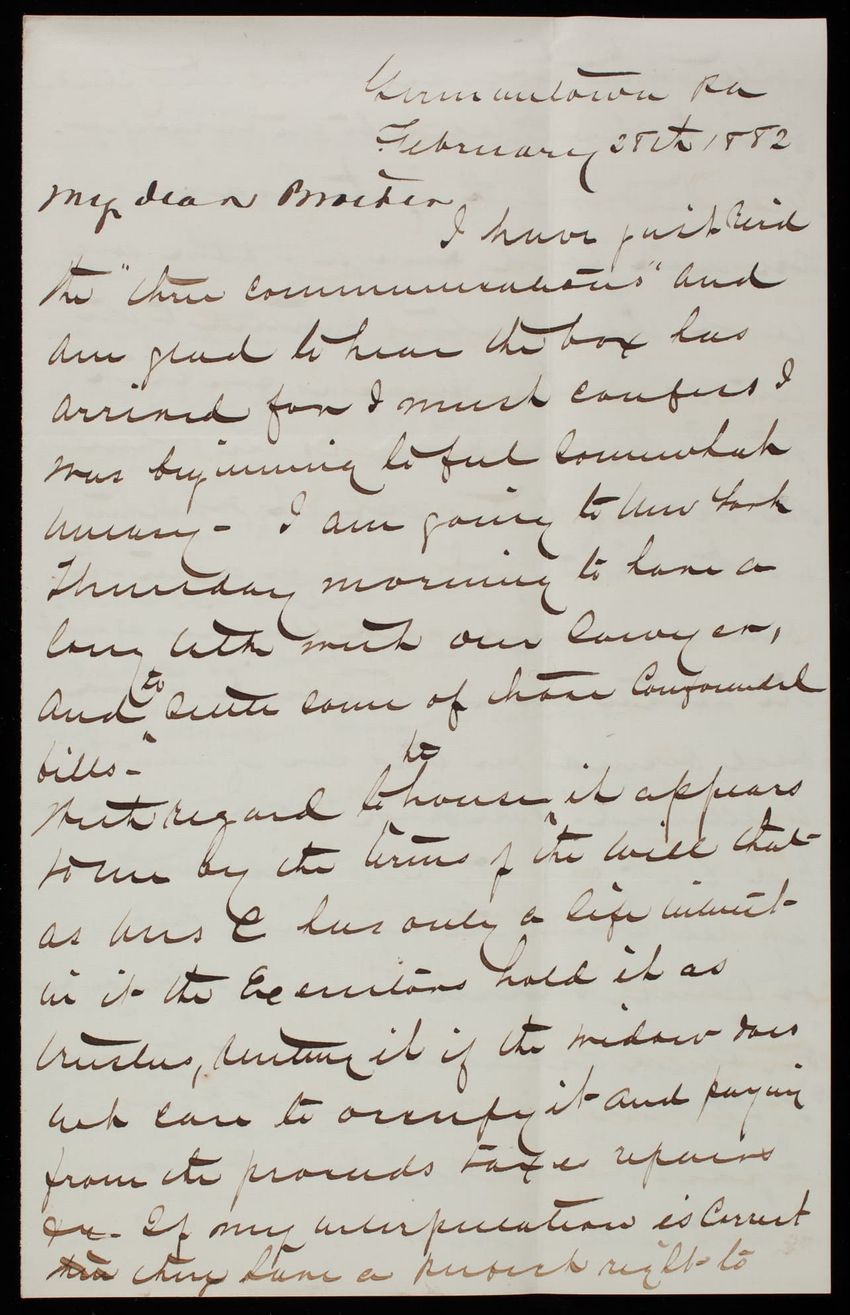 Germantown Pa
February 28th 1882
My dear Brother
I have just rec'd
the "three communications" and
am glad to hear the box has
arrived for I must confess I
was beginning to feel somewhat
uneasy - I am going to New York
Thursday morning to have a
long talk with our lawyer,
and to settle some of those confounded
bills -
With regard to the house, it appears
to me by the terms of the will that
as Mrs C has only a life interest
in it the Executors hold it as
trustees, renting it if the widow does
not care to occupy it and paying
from the proceeds taxes repairs
&c - If my interpretation is correct
they have a perfect right to